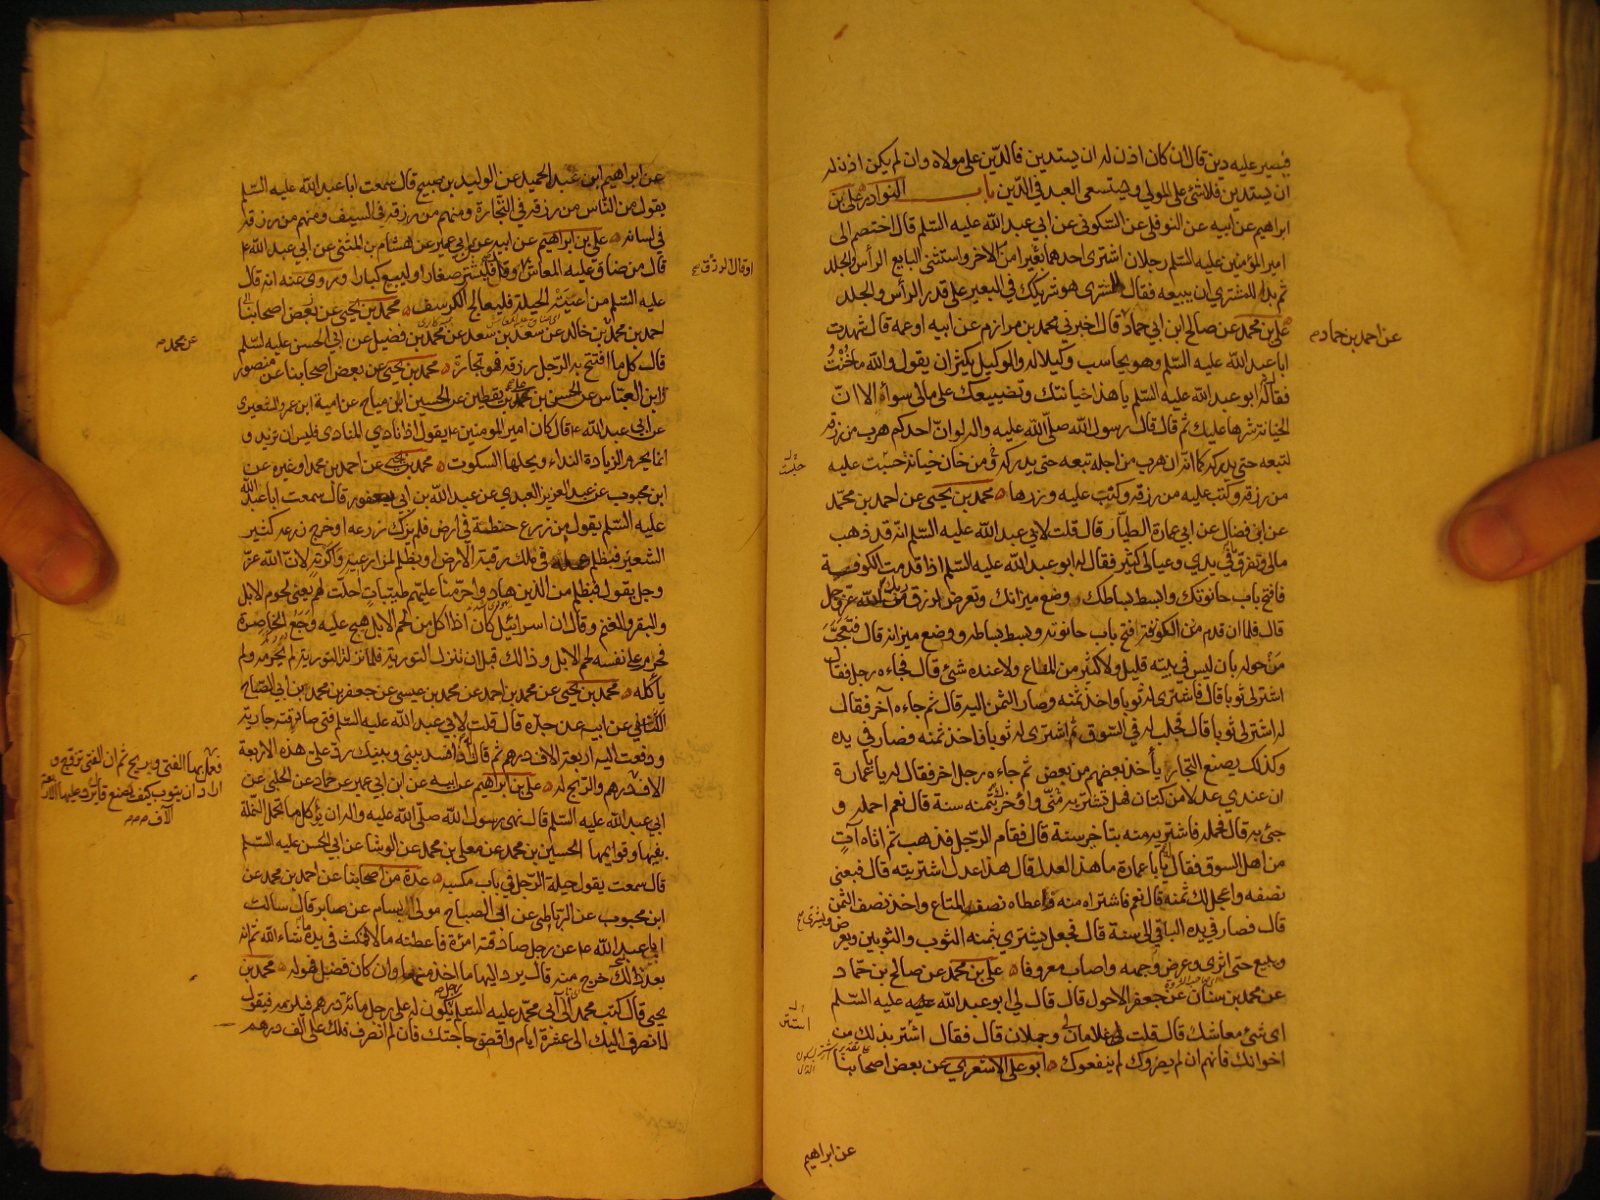 فيصير عليه دين قال ان كان اذن له ان يستدين فالدين على مولاه وان لم يكن اذن له
ان يستدين فلا شئ على المولى ويستسعى العبد في الدين باب النوادر على بن
ابراهيم عن ابيه عن النوفلى عن السكونى عن ابي عبد الله عليه السلم قال اختصم الى
امير المؤمنين عليه السلم رجلان اشترى احدهما بعيرا من الاخر واستثنى البايع الرأس والجلد
ثم بدا للمشترى ان يبيعه فقال للمشترى هو شريكك في البعير على قدر الرأس والجلد
على بن محمد عن صالح ابن ابي حماد قال اخبرني محمد بن مرازم عن ابيه او عمه قال شهدت
عن احمد بن حماد
ابا عبد الله عليه السلم وهو يحاسب وكيلا له والوكيل يكثر ان يقول والله ما خنت
فقال له ابو عبد الله عليه السلم يا هذا خيانتك وتضييعك على مالى سواء الا ان
الخيانة شرها عليك ثم قال قال رسول الله صلى الله عليه واله لو ان احدكم هرب من رزقه
لتبعه حتى يدركه كما انه ان هرب من اجله تبعه حتى يدركه ومن خان خيانة حسبت عليه
من رزقه وكتب عليه وزرها محمد بن يحيى عن احمد بن محمد
عن ابن فضال عن ابي عمارة الطيار قال قلت لابي عبد الله عليه السلم انه قد ذهب
مالي وتفرق ما في يدي وعيالي كثير فقال له ابو عبد الله عليه السلم اذا قدمت الكوفة
فافتح باب حانوتك وابسط بساطك وضع ميزانك وتعرض لرزق ربك الله عز وجل
قال فلما ان قدم من الكوفة فتح باب حانوته وبسط بساطه ووضع ميزانه قال فتعجب
من حوله بان ليس في بيته قليل ولا كثير من المتاع ولا عنده شئ قال فجاءه رجل فقال
اشتر لي ثوبا قال فاشترى له ثوبا واخذ ثمنه وصار الثمن اليه قال ثم جاءه آخر فقال
له اشتر لي ثوبا قال فجلب له في السوق ثم اشترى له ثوبا فاخذ ثمنه فصار في يده
وكذلك يصنع التجار يأخذ بعضهم من بعض ثم جاءه رجل اخر فقال له يا با عمارة
ان عندي عدلا من كتان فهل تشتريه منى واؤخرك بثمنه سنة قال نعم احمله و
جئ به قال فحمله فاشتريه منه بتاخير سنة قال فقام الرجل فذهب ثم اتاه آت
من اهل السوق فقال يا با عمارة ما هذا العدل قال هذا عدل اشتريته قال فبعنى
نصفه واعجل لك ثمنه قال نعم فاشتراه منه واعطاه نصف المتاع واخذ نصف الثمن
قال فصار في يده الباقي الى سنة قال فجعل يشتري بثمنه الثوب والثوبين ويعرض ويشترى
ويبيع حتى اثرى وعرض وجهه واصاب معروفا على بن محمد عن صالح بن حماد
عن محمد بن سنان عن جعفر الاحول قال قال لي ابو عبد الله عليه السلم
اى شئ معاشك قال قلت غلامان لي وجملان قال فقال استتر بذلك من
اخوانك فانهم ان لم يضروك لم ينفعوك ابو على الاشعري عن بعض اصحابنا
عن ابراهيم
عن ابراهيم ابن عبد الحميد عن الوليد بن صبيح قال سمعت ابا عبد الله عليه السلم
يقول من الناس من رزقه في التجارة ومنهم من رزقه في السيف ومنهم من رزقه
في لسانه على بن ابراهيم عن ابيه عن ابن ابي عمير عن هشام بن المثنى عن ابي عبد الله ع
قال من ضاق عليه المعاش فليشتر صغارا وليبيع كبارا وروى عنه انه قال
او قال الرزق
عليه السلم من اعيته الحيلة فليعالج الكرسف محمد بن يحيى عن بعض اصحابنا
احمد بن محمد بن خالد عن سعد بن سعد عن محمد بن فضيل عن ابي الحسن عليه السلم
عن محمد
قال كل ما افتتح به الرجل رزقه فهو تجارة محمد بن يحيى عن بعض اصحابنا عن منصور
ابن العباس عن الحسن بن على بن يقطين عن الحسين ابن مياح عن امية ابن عمرو الشعيرى
عن ابي عبد الله ع قال كان امير المومنين ع يقول اذا نادي المنادي فليس لك ان تزيد و
انما يحرم الزيادة النداء ويحلها السكوت محمد بن يحيى عن احمد بن محمد او غيره عن
ابن محبوب عن عبد العزيز العبدي عن عبد الله بن ابي يعفور قال سمعت ابا عبد الله
عليه السلم يقول من زرع حنطة في ارض فلم يزك زرعه او خرج زرعه كثير
الشعير فبظلم عمله في ملك رقبة الارض او بظلم لمزارعيه واكرته لان الله عز
وجل يقول فبظلم من الذين هادوا حرمنا عليهم طيبات احلت لهم يعنى لحوم الابل
والبقر والغنم وقال ان اسرائيل كان اذا اكل من لحم الابل هيج عليه وجع الخاصرة
فحرم على نفسه لحم الابل وذالك قبل ان تنزل التورية فلما نزلت التورية لم يحرمه ولم
يأكله محمد بن يحيى عن محمد بن احمد عن محمد بن عيسى عن جعفر بن محمد بن ابي الصباح
عن ابيه عن جده قال قلت لابي عبد الله عليه السلم فتى صادقته جارية
ودفعت اليه اربعة الاف درهم ثم قالت اذا فسد بيني وبينك رد على هذه الاربعة
الاف درهم والربح له على بن ابراهيم عن ابيه عن ابن ابي عمير عن حماد عن الحلبي عن
فعمل بها الفتى وربح ثم ان الفتى تزوج و
اراد ان يتوب كيف يصنع قال يرد عليها الاربعة
آلاف
ابي عبد الله عليه السلم قال نهى رسول الله صلى الله عليه واله ان يؤكل ما تحمل النملة
بفيها وقوايمها الحسين بن محمد عن معلى بن محمد عن الوشا عن ابي الحسن عليه السلم
قال سمعته يقول حيلة الرجل في باب مكسبه عدة من اصحابنا عن احمد بن محمد عن
ابن محبوب عن الرباطى عن ابي الصباح مولى بسام عن صابر قال سالت
ابا عبد الله ع عن رجل صادقته امرأة فاعطته مالا فمكث في يده ما شاء الله ثم انه
بعد ذلك خرج منه قال يرد اليها ما اخذ منها وان كان فضل فهو له محمد بن
يحيى قال كتب محمد الى ابي محمد عليه السلم رجل يكون له على رجل مائة درهم فيلزمه فيقول
له انصرف اليك الى عشرة ايام واقضى حاجتك فان لم انصرف فلك على الف درهم